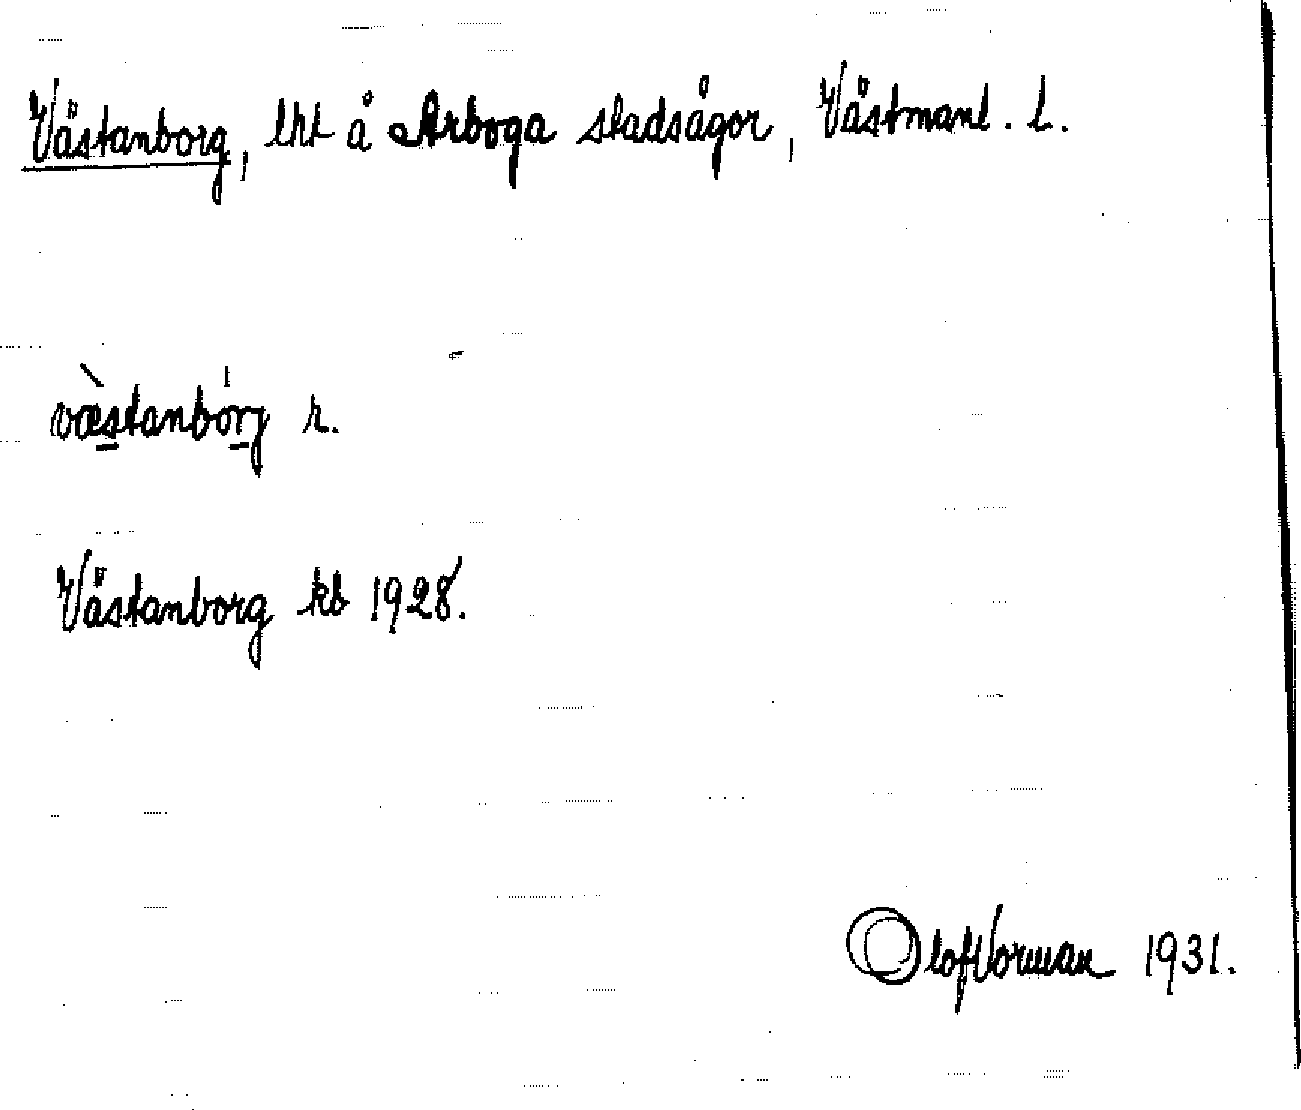 Västanborg, lht å Arboga stadsägor, Västmanl. l.
væ̀stanbórg r.
Västanborg kb 1928.
Olof Vorman 1931.